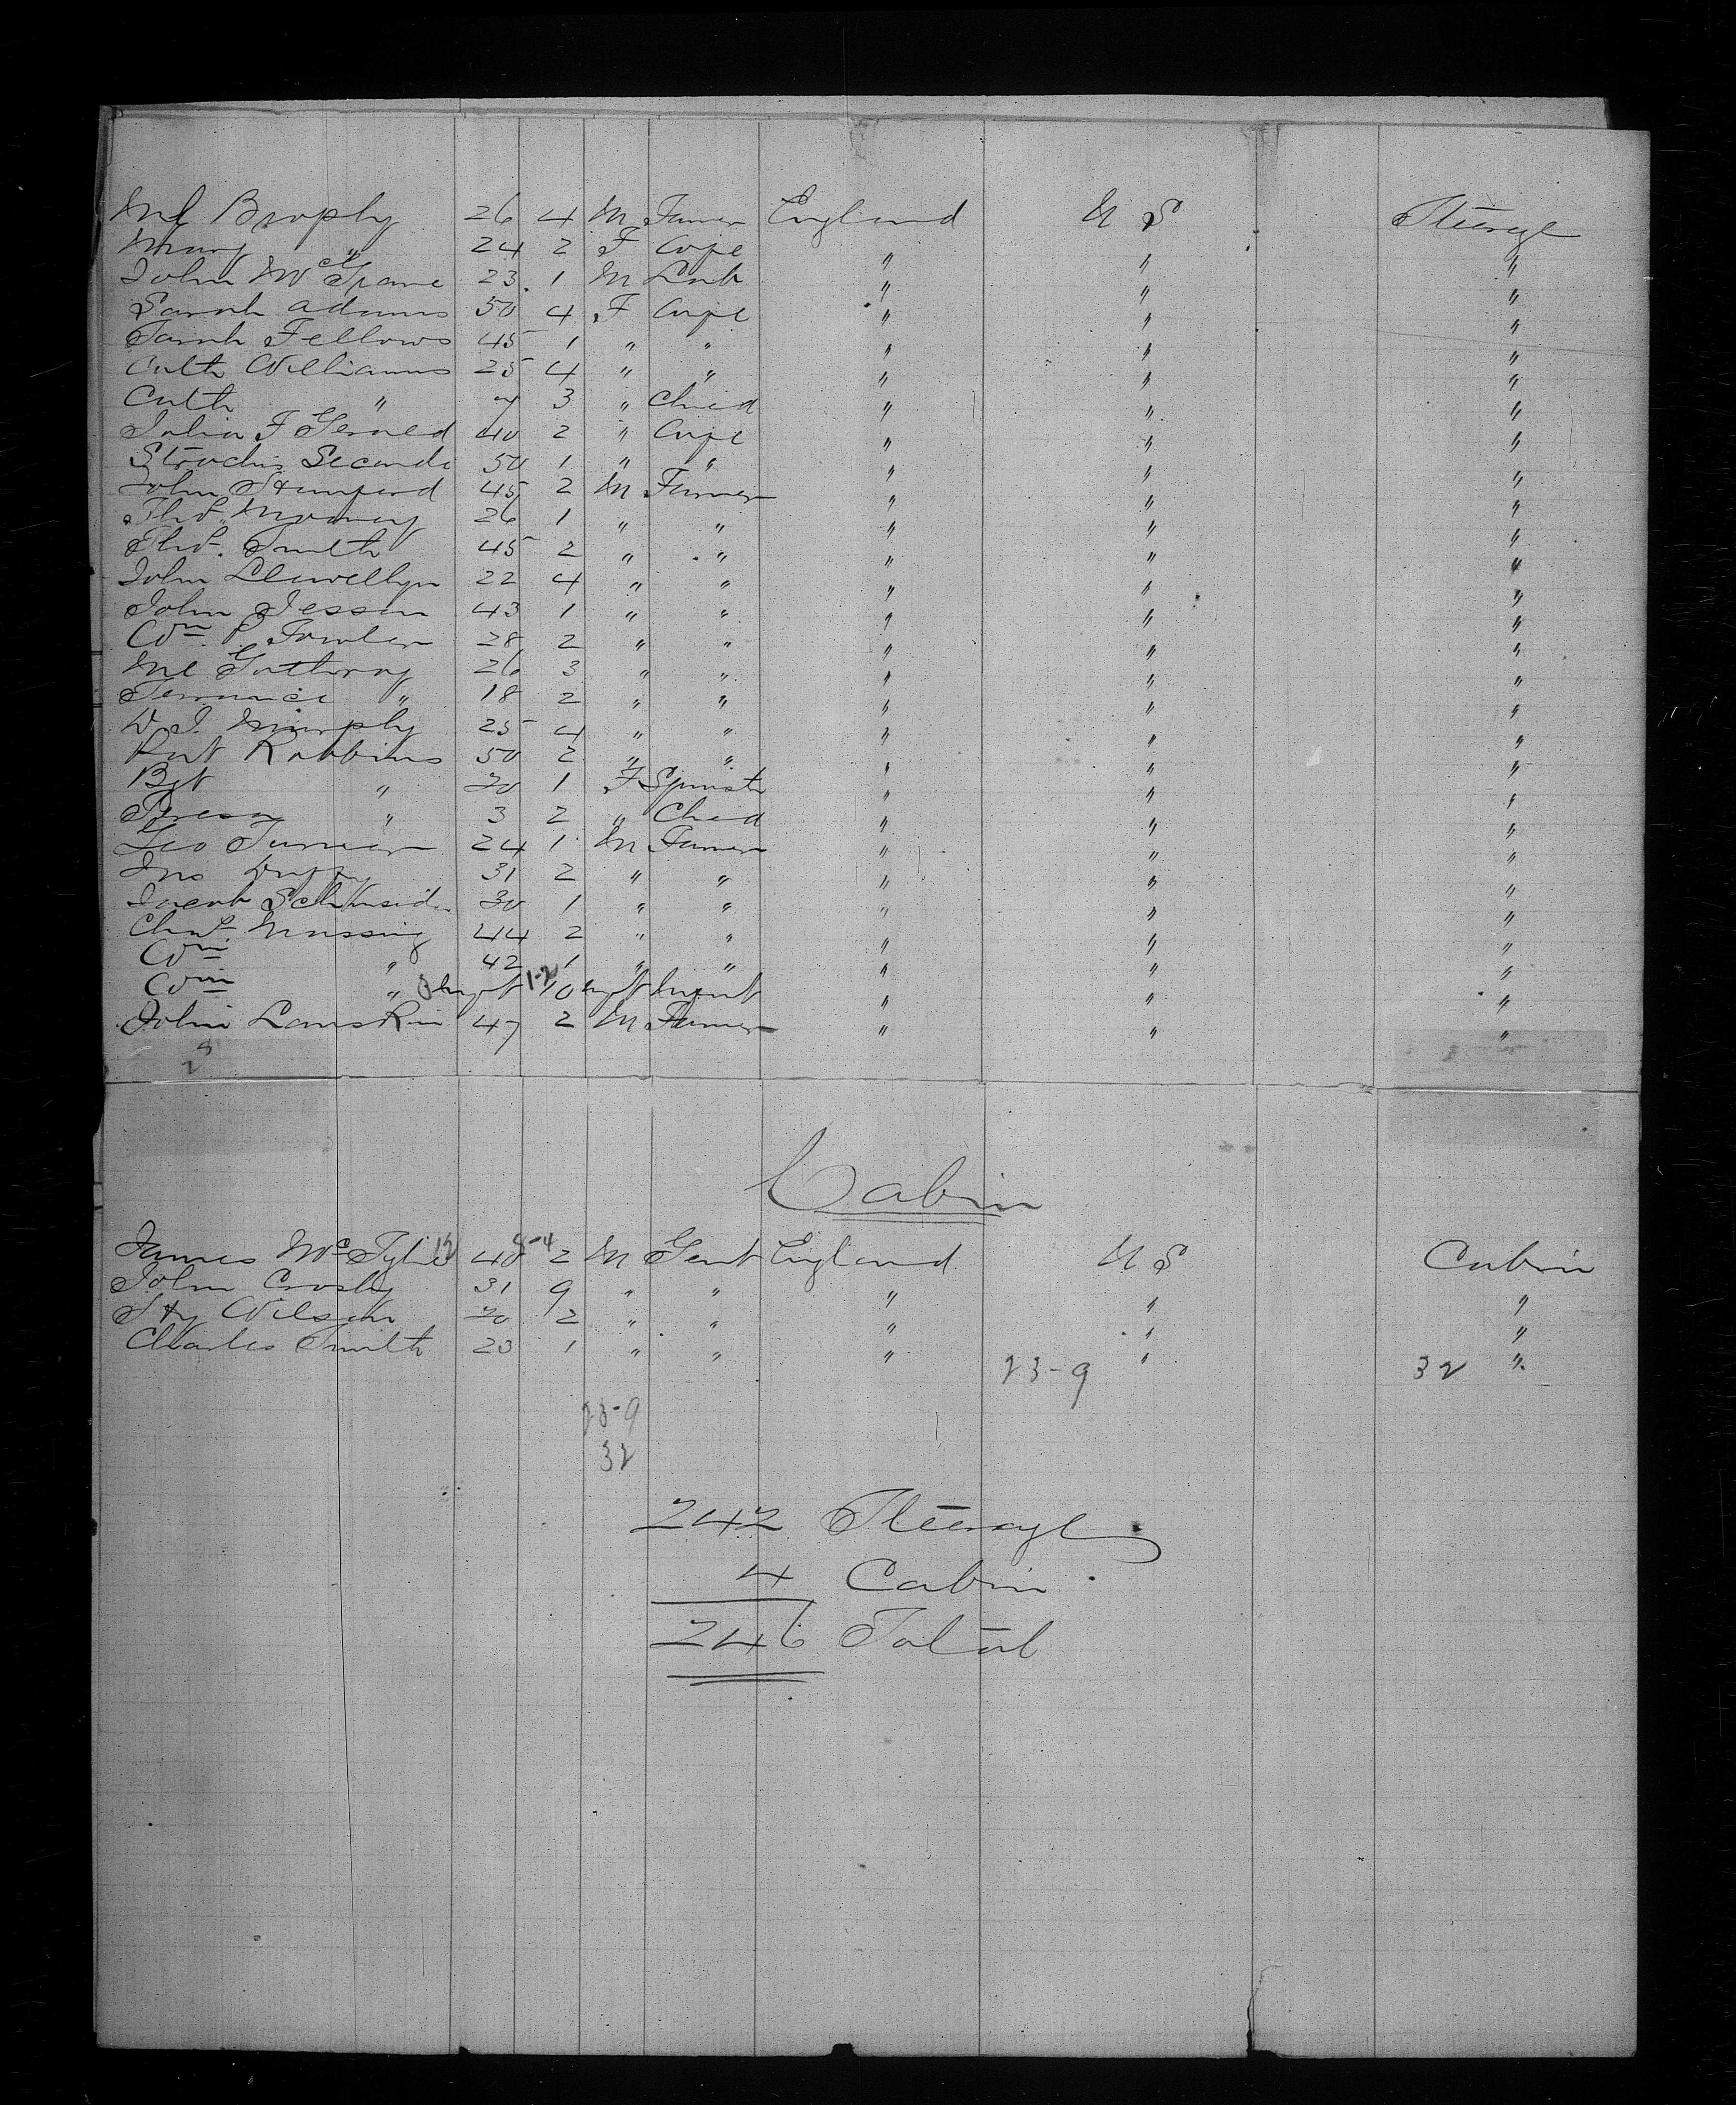 Ml Brophy 26 4 M Farmer England U S Steerage
Mary " 24 2 F Wife " " "
John McGrane 23 1 M Lab " " "
Sarah Adams 50 4 F Wife " " "
Sarah Fellows 45 1 " " " " "
Cath Williams 25 4 " " " " "
Cath " 7 3 " Child " " "
Julia F 40 2 " Wife " " "
Secondo 50 1 " " " " "
John Stanford 45 2 M Farmer " " "
Thos Mooney 26 1 " " " " "
Thos. Smith 45 2 " " " " "
John Llewellyn 22 4 " " " " "
John Jesson 43 1 " " " " "
Wm P Fowler 28 2 " " " " "
Ml 26 3 " " " " "
Terrance " 18 2 " " " " "
D. J. Murphy 25 4 " " " " "
Robbins 50 2 " " " " "
Bgt " 20 1 F Spinstr " " "
Theresa " 3 2 " Child " " "
Geo Turner 24 1 M Farmer " " "
Jno Duffy 31 2 " " " " "
Jacob Schneider 30 1 " " " " "
Chas Massing 44 2 " " " " "
Wm " 42 1 " " " " "
Wm " Infant 10 Inft Infant " " "
John Lanskin 47 2 M Farmer " " "
Cabin
James 40 2 M Gent England U S Cabin
John Crosby 31 9 " " " " "
Hy Wilson 20 2 " " " " "
Charles Smith 23 1 " " " " "
23-9 32
23-9
32
242 Steerage
4 Cabin
246 Total